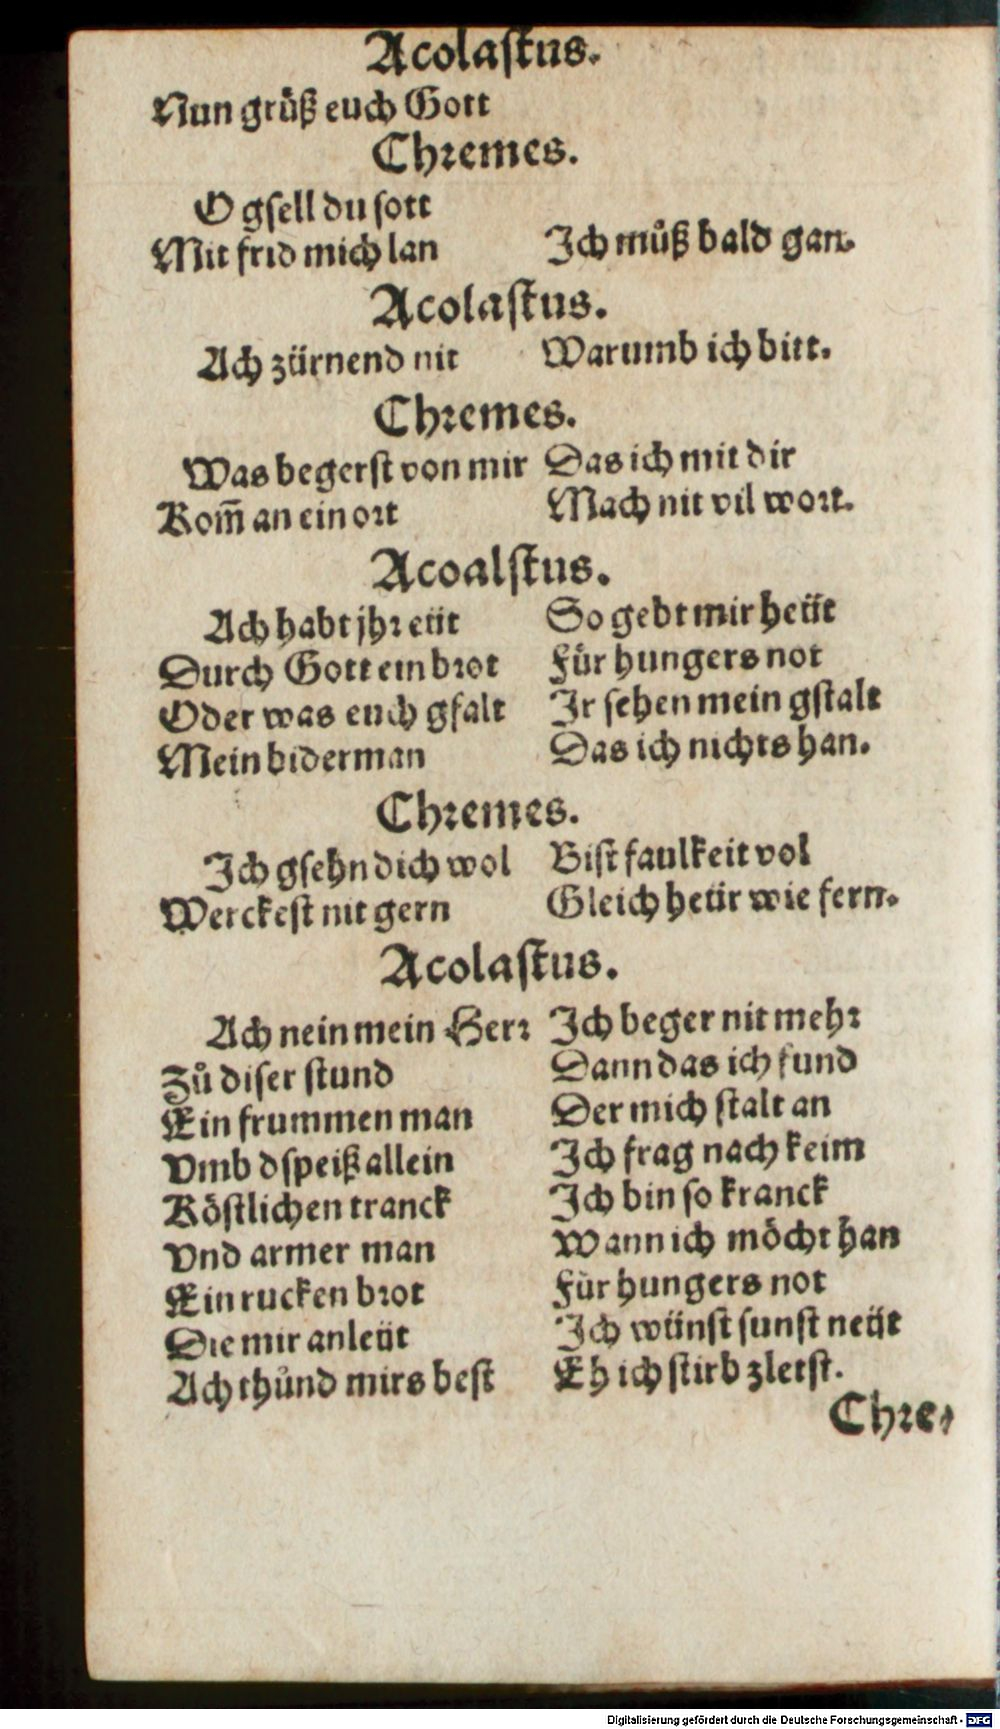 Acolaſtus.
Nun grüß euch Gott
Chremes.
O gſell du ſott
Mit frid mich lan Ich müß bald gan.
Acolaſtus.
Ach zürnend nit Warumb ich bitt.
Chremes.
Was begerſt von mir Das ich mit dir
Kom̃ an ein ort Mach nit vil wort.
Acoalſtus.
Ach habt jhr etit So gebt mir hetit
Durch Gott ein brot Für hungers not
Oder was euch gfalt Ir ſehen mein gſtalt
Mein biderman Das ich nichts han.
Chremes.
Ich gſehn dich wol Biſt faulkeit vol
Werckeſt nit gern Gleich heür wie fern.
Acolaſtus.
Ach nein mein Herr Ich beger nit mehr
Zů diſer ſtund Dann das ich fund
Ein frummen man Der mich ſtalt an
Vmb dſpeiß allein Ich frag nach keim
Köſtlichen tranck Ich bin ſo kranck
Vnd armer man Wann ich möcht han
Ein rucken brot Für hungers not
Die mir anleüt Ich wünſt ſunſt neüt
Ach thůnd mirs beſt Eh ich ſtirb zletſt.
Chre⸗
Digitalisierung gefördert durch die Deutsche Forschungsgemeinschaft - DFG